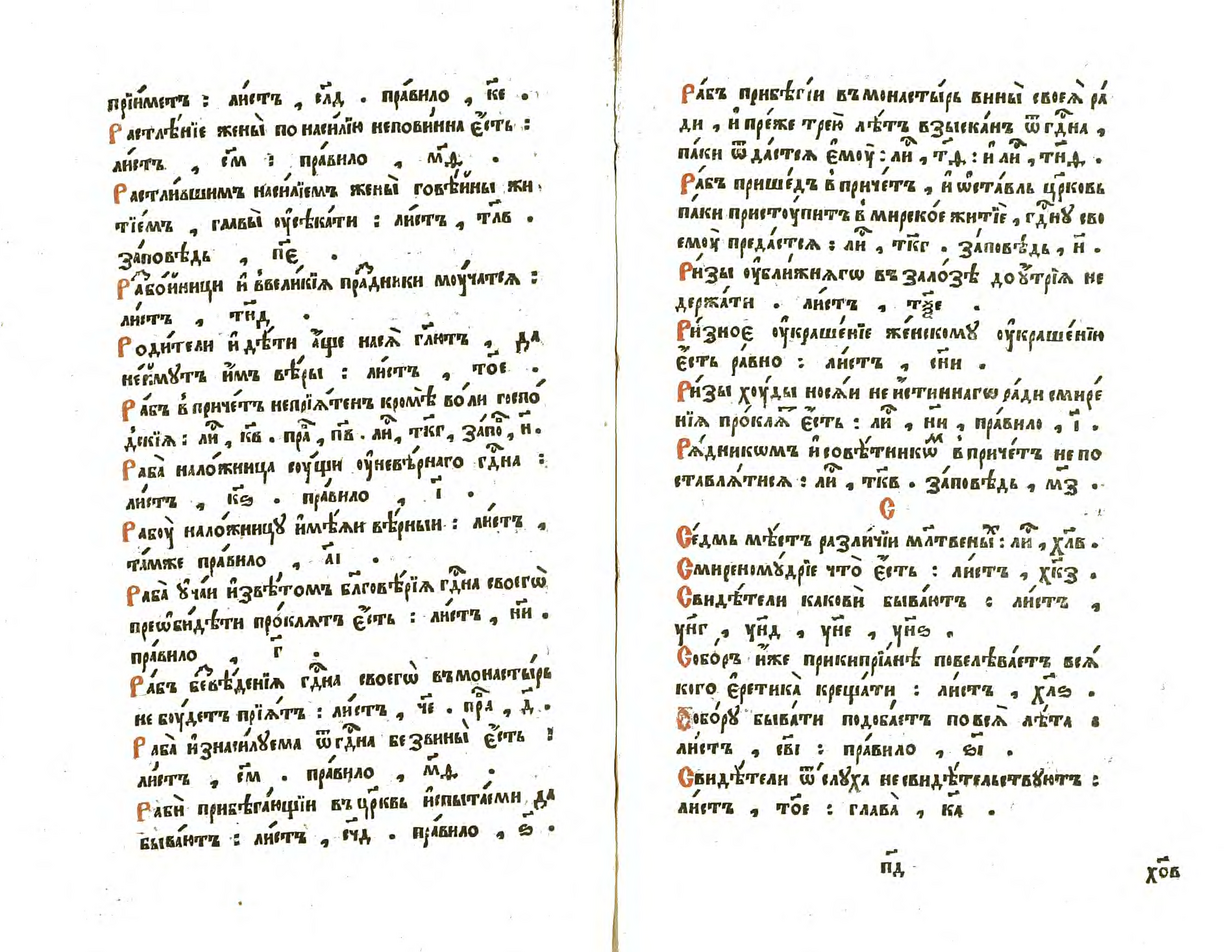 прїи́метъ : ли́стъ , сл҃д . пра́вило , к҃е .
Растлѣ́нїе жены̀ по наси́лїю непови́нна є҆́сть :
ли́стъ , с҃м : пра́вило , м҃д .
Растли́вшимъ наси́лїемъ жены̀ говѣ́йны жи
тїе́мъ , главы̀ ᲂу҆сѣка́ти : ли́стъ , тл҃в .
за́повѣдь , п҃є .
Рабо́йници и҆ в вели́кїѧ пра́дники моу́чатсѧ :
ли́стъ , тн҃д .
Роди́тели и҆ дѣ́ти а҆́ще на сѧ̀ гл҃ютъ , да
не є҆́млутъ и҆̀мъ вѣ́ры : ли́стъ , то҃е .
Ра́бъ в при́четъ непрїѧ́тенъ кромѣ̀ во́ли госпо́
дскїѧ : ли , к҃в . пра , п҃в . ли , тк҃г , запо , и҃ .
Раба̀ нало́жница соу́щи ᲂу҆ невѣ́рнаго гдⷭ҇на :
ли́стъ , к҃ѕ . пра́вило , і҃ .
Рабоу̀ нало́жницꙋ и҆мѣ́ѧи вѣ́рныи : ли́стъ ,
та́мже пра́вило , а҃і .
Раба̀ ᲂу҆ча́и и҆звѣ́томъ блг҃овѣ́рїѧ гдⷭ҇на своегѡ̀
преѡби́дѣти про́клѧтъ є҆́сть : ли́стъ , н҃и .
пра́вило , г҃ .
Ра́бъ безвѣ́денїѧ гдⷭ҇на своегѡ̀ въ монасты́рь
не боу́детъ прїѧ́тъ : ли́стъ , ч҃е . пра , д҃ .
Раба̀ и҆знаси́лꙋема ѿ гдⷭ҇на без вины̀ є҆́сть :
ли́стъ , с҃м . пра́вило , м҃д .
Рабѝ прибѣга́ющїи въ цр҃ковь и҆спыта́еми да
быва́ютъ : ли́стъ , сч҃д . пра́вило , ѕ҃ .
Ра́бъ прибѣ́гїи въ монасты́рь вины̀ своеѧ̀ ра́
ди , и҆ пре́же трею̀ лѣ́тъ взыска́нъ ѿ гдⷭ҇на ,
па́ки ѿда́стсѧ є҆моу̀ : ли , т҃д : и҆ ли , тн҃д .
Ра́бъ прише́дъ в при́четъ , и҆ ѡста́вль цр҃ковь
па́ки пристоу́питъ в мирско́е житїѐ , гдⷭ҇нꙋ сво
емоу̀ преда́стсѧ : ли , тк҃г . за́повѣдь , и҃ .
Ри́зы ᲂу҆бли́жнѧгѡ въ зало́зѣ до ᲂу҆́трїѧ не
держа́ти . ли́стъ , тѯ҃е .
Ри́зное ᲂу҆краше́нїе же́нскомꙋ ᲂу҆краше́нїю
є҆́сть ра́вно : ли́стъ , сн҃и .
Ри́зы хоу́ды носѧ́и не и́стиннагѡ ра́ди смире́
нїѧ про́клѧ є҆́сть : ли , н҃и , пра́вило , і҃ .
Рѧ́дникѡмъ и҆ совѣ́тникѡм в при́четъ не по
ставлѧ́тисѧ : ли , тк҃в . за́повѣдь , м҃з .
С
Се́дмь мѣ́стъ разли́чїи мл҃твены : ли , хл҃в .
Смиреномꙋ́дрїе что̀ є҆́сть : ли́стъ , хк҃з .
Свидѣ́тели какови̇̀ быва́ютъ : ли́стъ ,
ун҃г , ун҃д , ун҃е , ун҃ѕ .
Собо́ръ и҆́же прикипрїа́нѣ повелѣва́етъ всѧ́
кого є҆ретика̀ креща́ти : ли́стъ , хл҃ѕ .
Собо́рꙋ быва́ти подоба́етъ по всѧ̀ лѣ́та :
ли́стъ , св҃і : пра́вило , ѕ҃і .
Свидѣ́тели ѿ слꙋ́ха не свидѣ́тельствꙋютъ :
ли́стъ , то҃е : глава̀ , к҃а .
п҃д
хо҃в